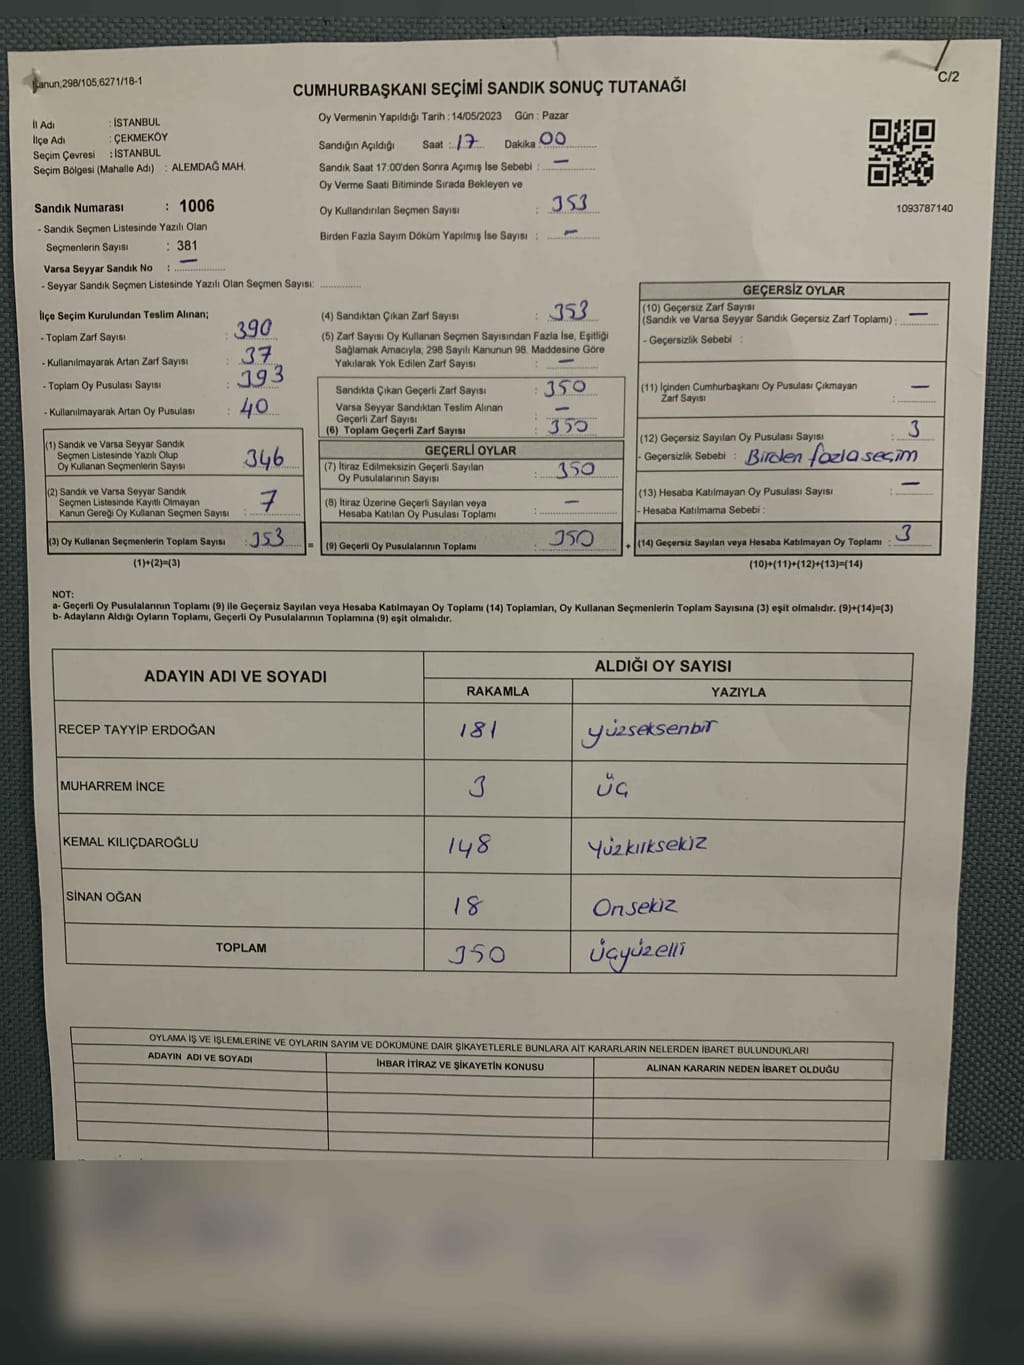 Kanun;298/105;6271/18-1
C/2
CUMHURBAŞKANI SEÇİMİ SANDIK SONUÇ TUTANAĞI
İl Adı : İSTANBUL
İlçe Adı : ÇEKMEKÖY
Seçim Çevresi : İSTANBUL
Seçim Bölgesi (Mahalle Adı) : ALEMDAĞ MAH.
Sandık Numarası : 1006
- Sandık Seçmen Listesinde Yazılı Olan
Seçmenlerin Sayısı : 381
Varsa Seyyar Sandık No : —
- Seyyar Sandık Seçmen Listesinde Yazılı Olan Seçmen Sayısı: ..............
Oy Vermenin Yapıldığı Tarih : 14/05/2023 Gün : Pazar
Sandığın Açıldığı Saat : 17 Dakika 00
Sandık Saat 17:00'den Sonra Açımış İse Sebebi : —
Oy Verme Saati Bitiminde Sırada Bekleyen ve
Oy Kullandırılan Seçmen Sayısı : 353
Birden Fazla Sayım Döküm Yapılmış İse Sayısı : —
1093787140
İlçe Seçim Kurulundan Teslim Alınan;
- Toplam Zarf Sayısı : 390
- Kullanılmayarak Artan Zarf Sayısı : 37
- Toplam Oy Pusulası Sayısı : 393
- Kullanılmayarak Artan Oy Pusulası : 40
(1) Sandık ve Varsa Seyyar Sandık
Seçmen Listesinde Yazılı Olup
Oy Kullanan Seçmenlerin Sayısı : 346
(2) Sandık ve Varsa Seyyar Sandık
Seçmen Listesinde Kayıtlı Olmayan
Kanun Gereği Oy Kullanan Seçmen Sayısı : 7
(3) Oy Kullanan Seçmenlerin Toplam Sayısı : 353
(1)+(2)=(3)
(4) Sandıktan Çıkan Zarf Sayısı : 353
(5) Zarf Sayısı Oy Kullanan Seçmen Sayısından Fazla İse, Eşitliği
Sağlamak Amacıyla; 298 Sayılı Kanunun 98. Maddesine Göre
Yakılarak Yok Edilen Zarf Sayısı : —
Sandıkta Çıkan Geçerli Zarf Sayısı : 350
Varsa Seyyar Sandıktan Teslim Alınan
Geçerli Zarf Sayısı : —
(6) Toplam Geçerli Zarf Sayısı : 350
GEÇERLİ OYLAR
(7) İtiraz Edilmeksizin Geçerli Sayılan
Oy Pusulasının Sayısı : 350
(8) İtiraz Üzerine Geçerli Sayılan veya
Hesaba Katılan Oy Pusulası Toplamı : —
= (9) Geçerli Oy Pusulalarının Toplamı : 350
GEÇERSİZ OYLAR
(10) Geçersiz Zarf Sayısı
(Sandık ve Varsa Seyyar Sandık Geçersiz Zarf Toplamı) : —
- Geçersizlik Sebebi :
(11) İçinden Cumhurbaşkanı Oy Pusulası Çıkmayan
Zarf Sayısı : —
(12) Geçersiz Sayılan Oy Pusulası Sayısı : 3
- Geçersizlik Sebebi : Birden fazla seçim
(13) Hesaba Katılmayan Oy Pusulası Sayısı : —
- Hesaba Katılmama Sebebi :
+ (14) Geçersiz Sayılan veya Hesaba Katılmayan Oy Toplamı : 3
(10)+(11)+(12)+(13)=(14)
NOT:
a- Geçerli Oy Pusulalarının Toplamı (9) ile Geçersiz Sayılan veya Hesaba Katılmayan Oy Toplamı (14) Toplamları, Oy Kullanan Seçmenlerin Toplam Sayısına (3) eşit olmalıdır. (9)+(14)=(3)
b- Adayların Aldığı Oyların Toplamı, Geçerli Oy Pusulalarının Toplamına (9) eşit olmalıdır.
ADAYIN ADI VE SOYADI
ALDIĞI OY SAYISI
RAKAMLA YAZIYLA
RECEP TAYYİP ERDOĞAN 181 yüzseksenbir
MUHARREM İNCE 3 üç
KEMAL KILIÇDAROĞLU 148 Yüzkırksekiz
SİNAN OĞAN 18 Onsekiz
TOPLAM 350 Üçyüzelli
OYLAMA İŞ VE İŞLEMLERİNE VE OYLARIN SAYIM VE DÖKÜMÜNE DAİR ŞİKAYETLERLE BUNLARA AİT KARARLARIN NELERDEN İBARET BULUNDUKLARI
ADAYIN ADI VE SOYADI İHBAR İTİRAZ VE ŞİKAYETİN KONUSU ALINAN KARARIN NEDEN İBARET OLDUĞU